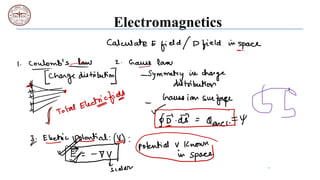 Electromagnetics
Calculate E field / D field in space
1. Coulomb's law
[Charge distribution]
Total Electric field
2. Gauss law
– Symmetry in charge distribution
– Gaussian surface
∮ D̄·ds̄ = Qencl. = ψ
3. Electric Potential: (V):
Ē = -∇V
scalar
Potential V known in space